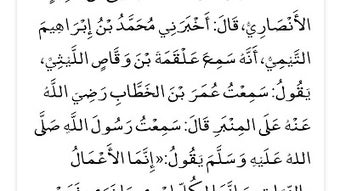 الأَنْصَارِيُّ، قَالَ: أَخْبَرَنِي مُحَمَّدُ بْنُ إِبْرَاهِيمَ
التَّيْمِيُّ، أَنَّهُ سَمِعَ عَلْقَمَةَ بْنَ وَقَّاصٍ اللَّيْثِيَّ،
يَقُولُ: سَمِعْتُ عُمَرَ بْنَ الخَطَّابِ رَضِيَ اللَّهُ
عَنْهُ عَلَى المِنْبَرِ قَالَ: سَمِعْتُ رَسُولَ اللَّهِ صَلَّى
اللهُ عَلَيْهِ وَسَلَّمَ يَقُولُ: «إِنَّمَا الأَعْمَالُ